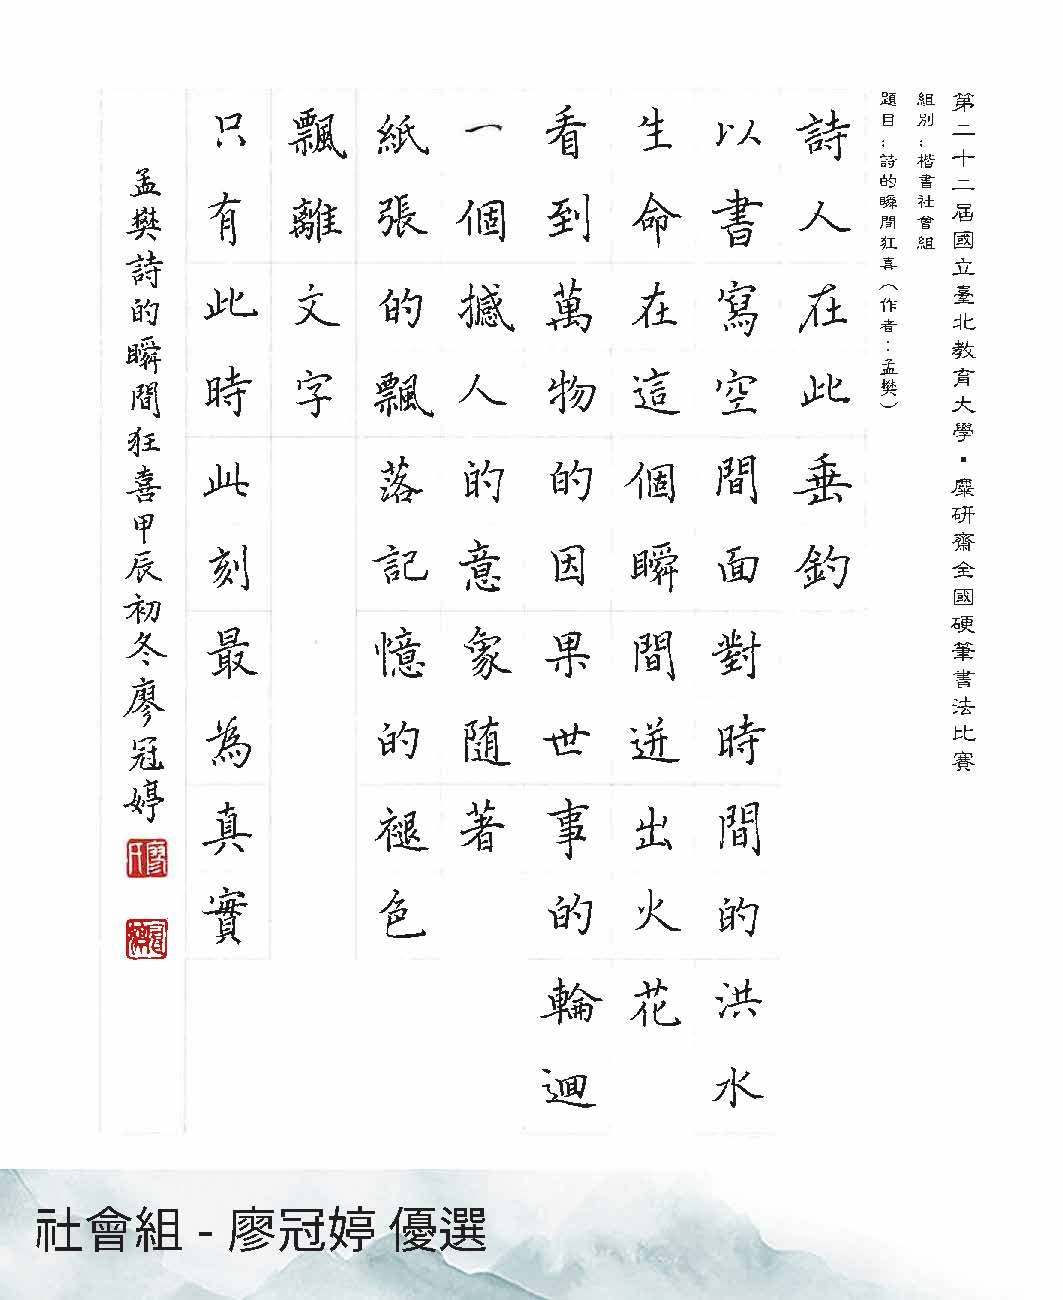 第二十二届國立臺北教育大學・麋研齋全國硬筆書法比賽
組別：楷書社會組
題目：詩的瞬間狂喜（作者：孟樊）
詩人在此垂釣
以書寫空間面對時間的洪水
生命在這個瞬間迸出火花
看到萬物的因果世事的輪迴
一個撼人的意象随著
紙張的飄落記憶的褪色
飄離文字
只有此時此刻最為真實
孟樊詩的瞬間狂喜甲辰初冬廖冠婷
社會組 - 廖冠婷 優選